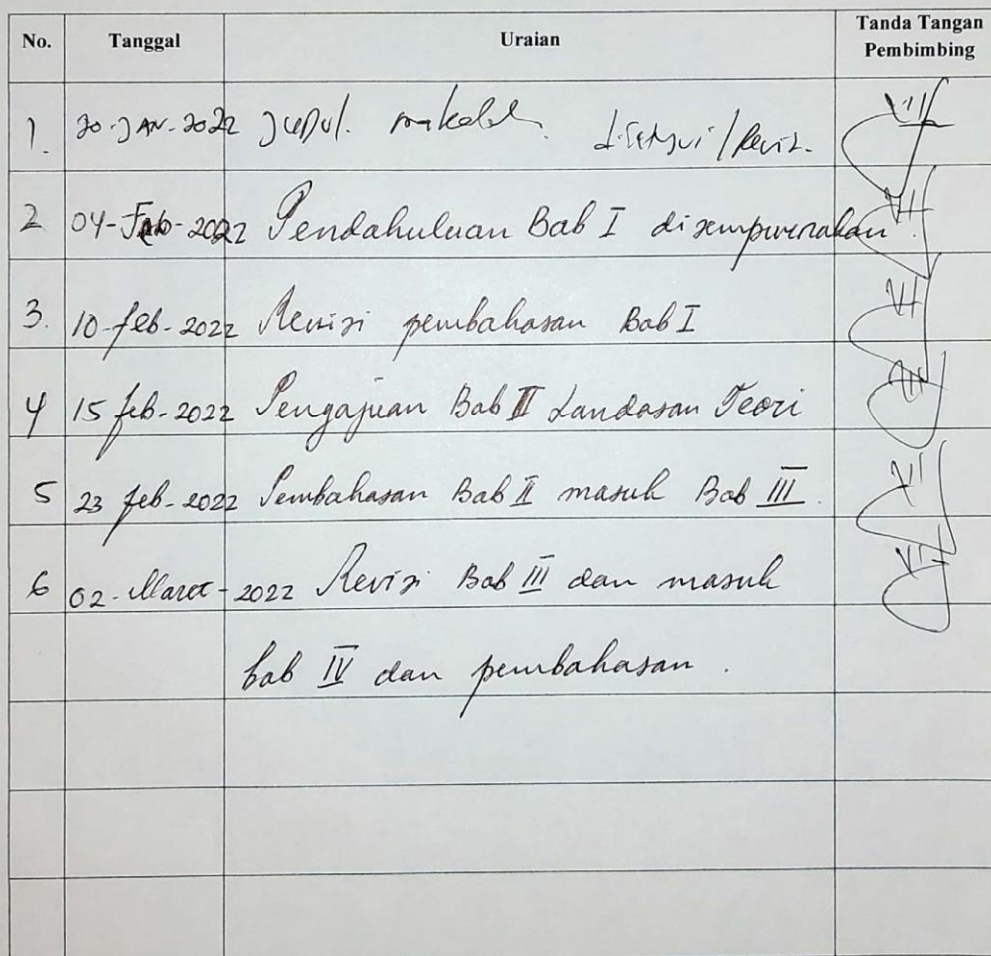 No. Tanggal Uraian Tanda Tangan
Pembimbing
1. 20-JAN-2022 Judul makalah disetujui/Revisi.
2 04-Feb-2022 Pendahuluan Bab I disempurnakan.
3. 10-feb-2022 Revisi pembahasan Bab I
4 15 feb-2022 Pengajuan Bab II Landasan Teori
5 23 feb-2022 Pembahasan Bab II masuk Bab III.
6 02-Maret-2022 Revisi Bab III dan masuk
bab IV dan pembahasan.